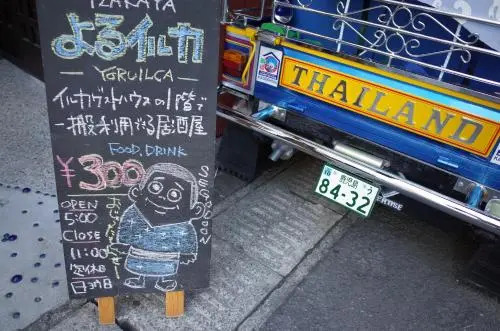 IZAKAYA
よるイルカ
YORUILCA
イルカゲストハウスの1階で
一般利用できる居酒屋
FOOD. DRINK
¥300
OPEN
5:00
CLOSE
11:00
定休日
日ヨウ日
THAILAND
鹿児島
う
84-32